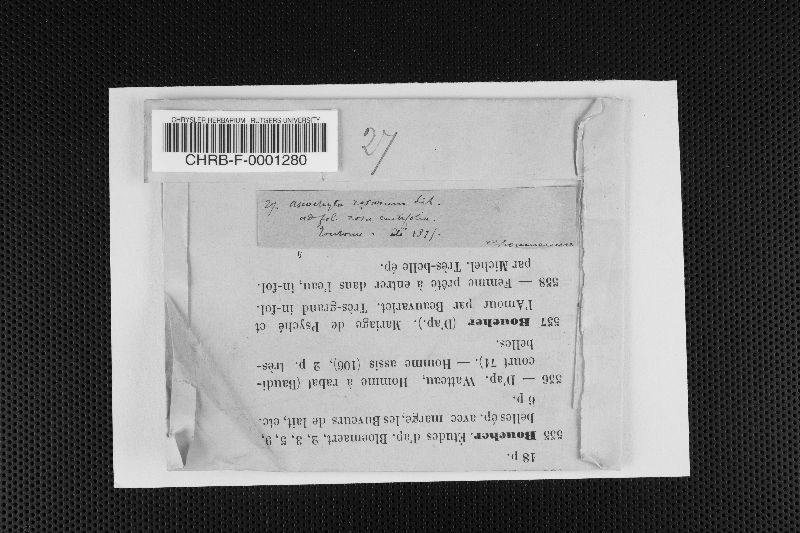 CHRYSLER HERBARIUM RUTGERS UNIVERSITY
CHRB-F-0001280
27
27. Ascochyta rosarum Lib.
ad fol. rosa centifolia.
18 p.
535 Boucher. Etudes d'ap. Bloemaert, 2, 3, 5, 9,
belles ép. avec marge, les Buveurs de lait, etc.
6 p.
536 — D'ap. Watteau, Homme à rabat (Baudi-
court 71). — Homme assis (106), 2 p. très-
belles.
537 Boucher (D'ap.). Mariage de Psyché et
l'Amour par Beauvarlet. Très-grand in-fol.
538 — Femme prête à entrer dans l'eau, in-fol.
par Michel. Très-belle ép.